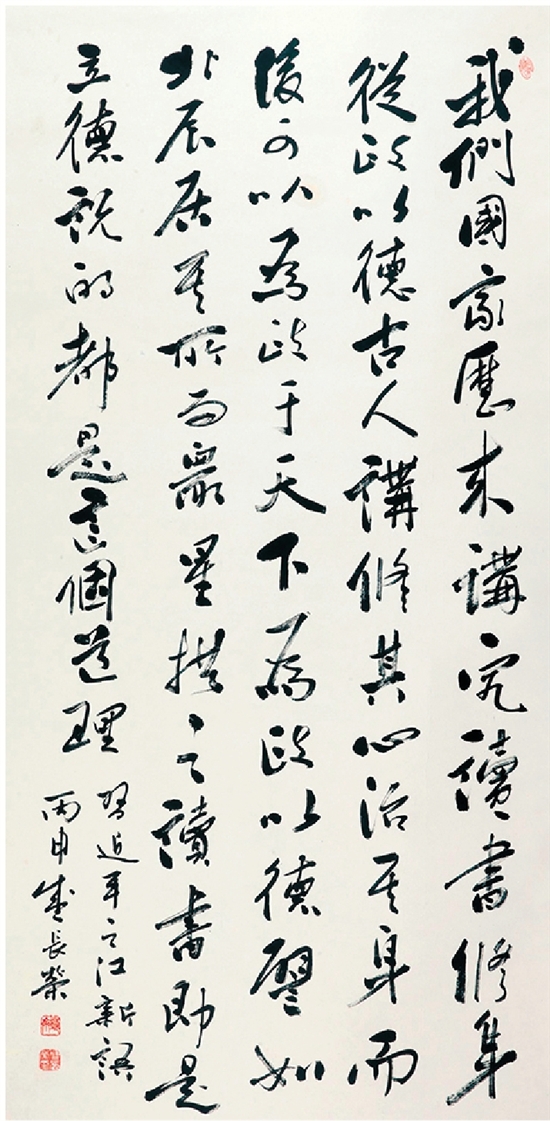 我們國家歷來講究讀書修身
從政以德古人講修其心治其身而
後可以為政于天下為政以德譬如
北辰居其所而眾星拱之讀書即是
立德說的都是這個道理
習近平之江新語
丙申 長榮